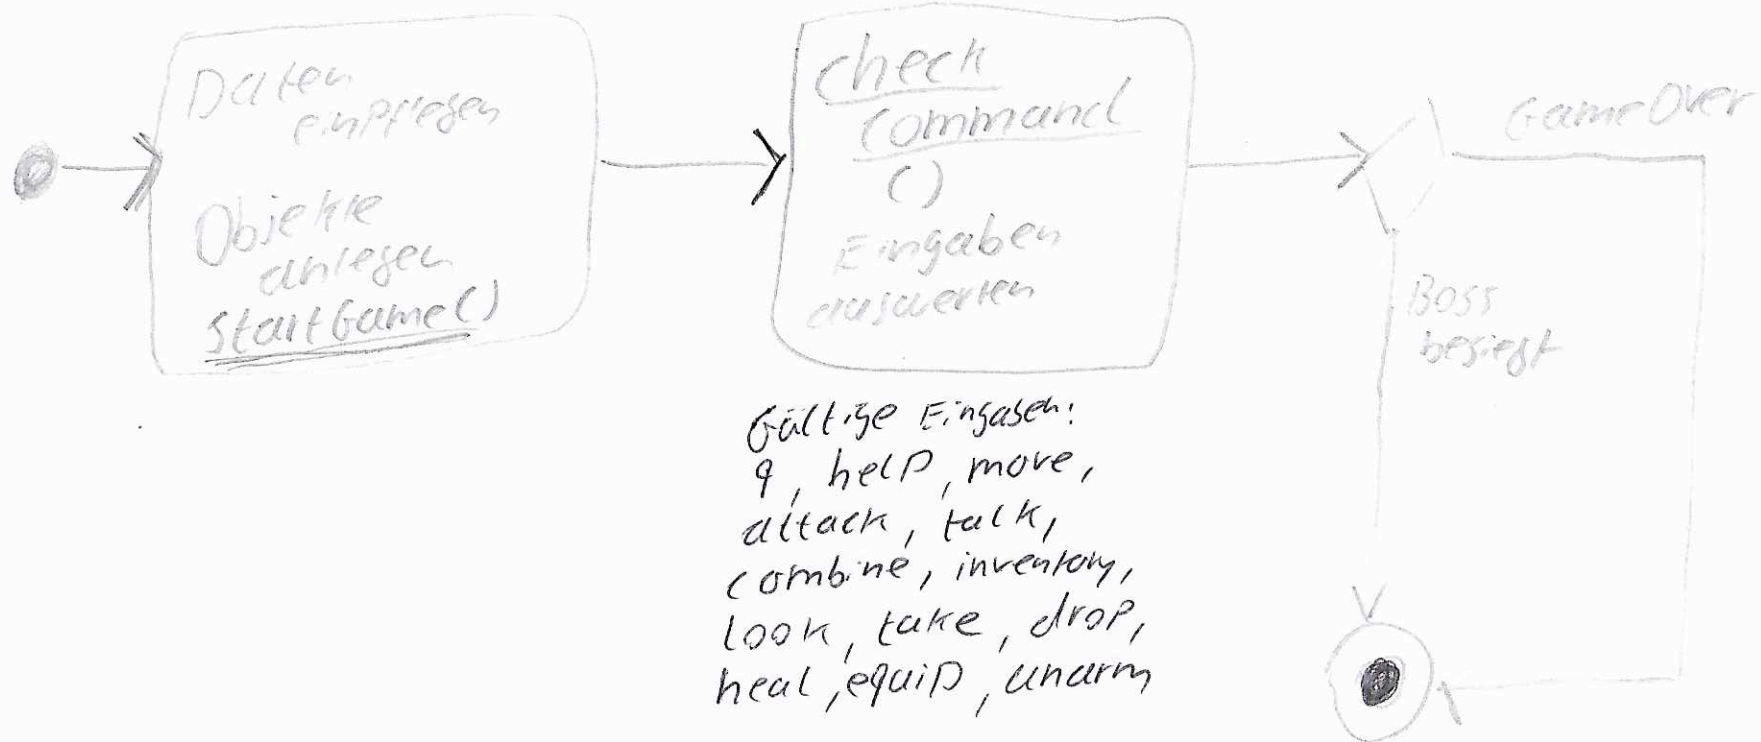 Daten
einpflegen
Objekte
anlegen
StartGame()
check
command
()
Eingaben
auswerten
GameOver
Boss
besiegt
Gültige Eingaben:
q, help, move,
attack, talk,
combine, inventory,
look, take, drop,
heal, equip, unarm